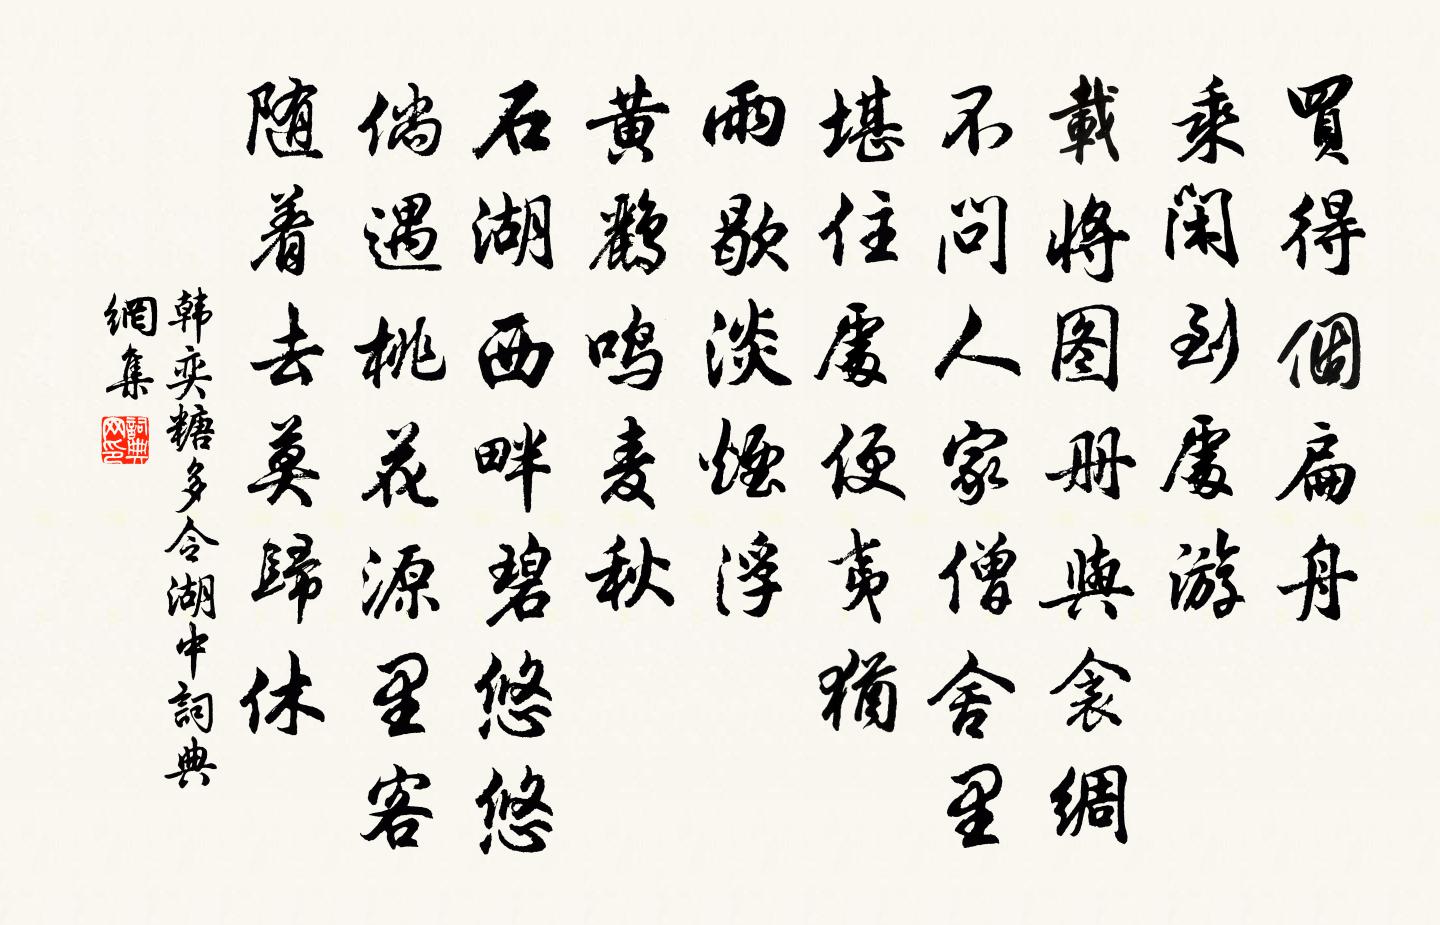 買得個扁舟
乘閑到處游
載將图册與衾綢
不問人家僧舍里
堪住處便夷猶
雨歇淡煙浮
黄鸝鳴麦秋
石湖西畔碧悠悠
倘遇桃花源里客
随着去莫歸休
韩奕糖多令湖中詞典
網集
詞典网印